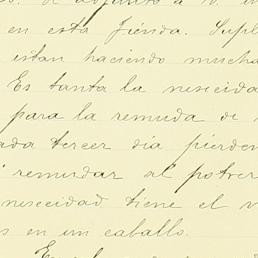 de adjunto a
en esta Tienda. Supl
estan haciendo mucha
Es tanta la nesecida
para la remuda de
ada tercer dia pierden
remudar al potrer
nesecidad tiene el v
s en un caballo.